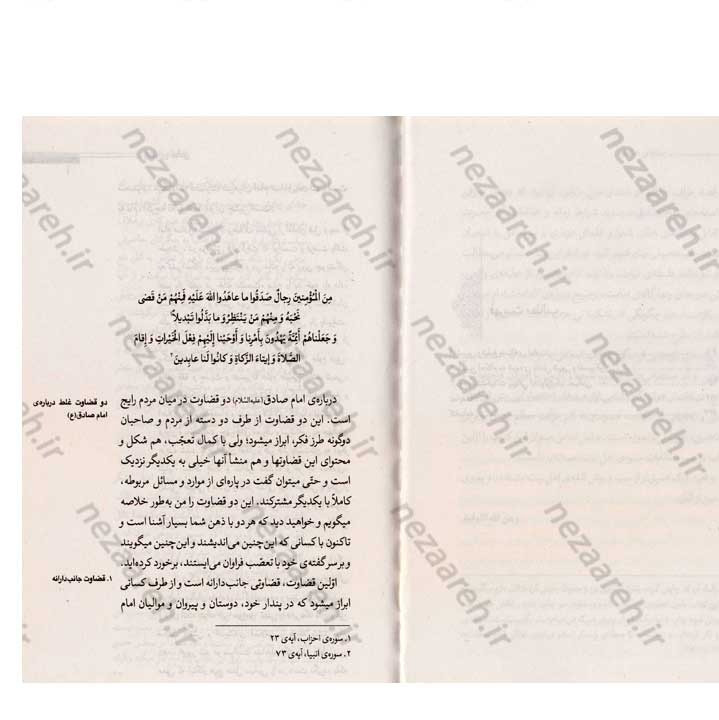 مِنَ الْمُؤْمِنينَ رِجالٌ صَدَقُوا ما عاهَدُوا اللهَ عَلَيْهِ فَمِنْهُمْ مَنْ قَضى
نَحْبَهُ وَ مِنْهُمْ مَنْ يَنْتَظِرُ وَ ما بَدَّلُوا تَبْديلاً۱
وَ جَعَلْناهُمْ أَئِمَّةً يَهْدُونَ بِأَمْرِنا وَ أَوْحَيْنا إِلَيْهِمْ فِعْلَ الْخَيْراتِ وَ إِقامَ
الصَّلاةِ وَ إيتاءَ الزَّكاةِ وَ كانُوا لَنا عابِدينَ۲
دو قضاوت غلط درباره‌ی
امام صادق(ع)
درباره‌ی امام صادق(علیه‌السّلام) دو قضاوت در میان مردم رایج
است. این دو قضاوت از طرف دو دسته از مردم و صاحبان
دوگونه طرز فکر، ابراز میشود؛ ولی با کمال تعجّب، هم شکل و
محتوای این قضاوتها و هم منشأ آنها خیلی به یکدیگر نزدیک
است و حتّی میتوان گفت در پاره‌ای از موارد و مسائل مربوطه،
کاملاً با یکدیگر مشترکند. این دو قضاوت را من به‌طور خلاصه
میگویم و خواهید دید که هر دو با ذهن شما بسیار آشنا است و
تاکنون با کسانی که این‌چنین می‌اندیشند و این‌چنین میگویند
و بر سر گفته‌ی خود با تعصّب فراوان می‌ایستند، برخورد کرده‌اید.
۱. قضاوت جانب‌دارانه
اوّلین قضاوت، قضاوتی جانب‌دارانه است و از طرف کسانی
ابراز میشود که در پندار خود، دوستان و پیروان و موالیان امام
۱. سوره‌ی احزاب، آیه‌ی ۲۳
۲. سوره‌ی انبیا، آیه‌ی ۷۳
nezaareh.ir
nezaareh.ir
nezaareh.ir
nezaareh.ir
nezaareh.ir
nezaareh.ir
nezaareh.ir
nezaareh.ir
nezaareh.ir